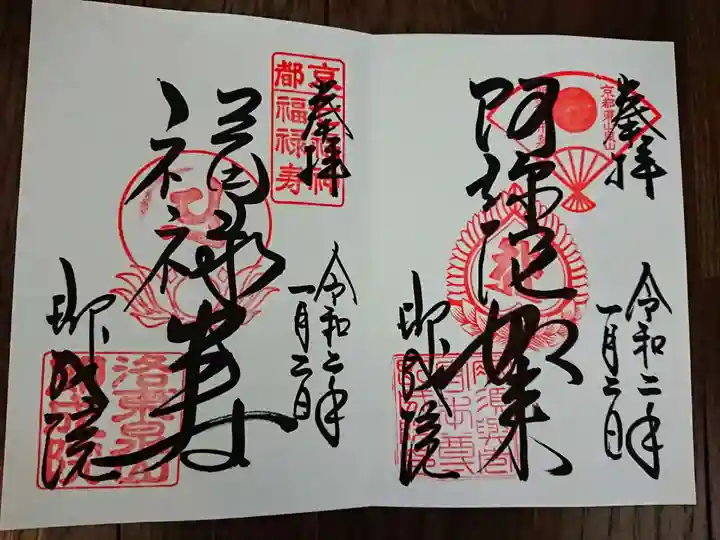 奉拝
京都東山泉山
阿弥陀如来
令和二年
一月二日
即成院
奉拝
京都
福禄寿
福禄寿
令和二年
一月二日
即成院
洛東泉山
即成院